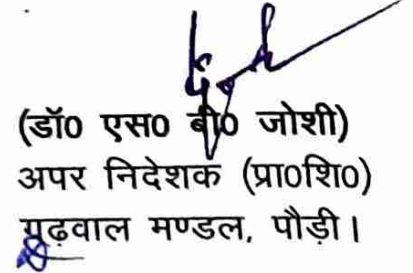 (डॉ0 एस0 बी0 जोशी)
अपर निदेशक (प्रा0शि0)
गढ़वाल मण्डल, पौड़ी।